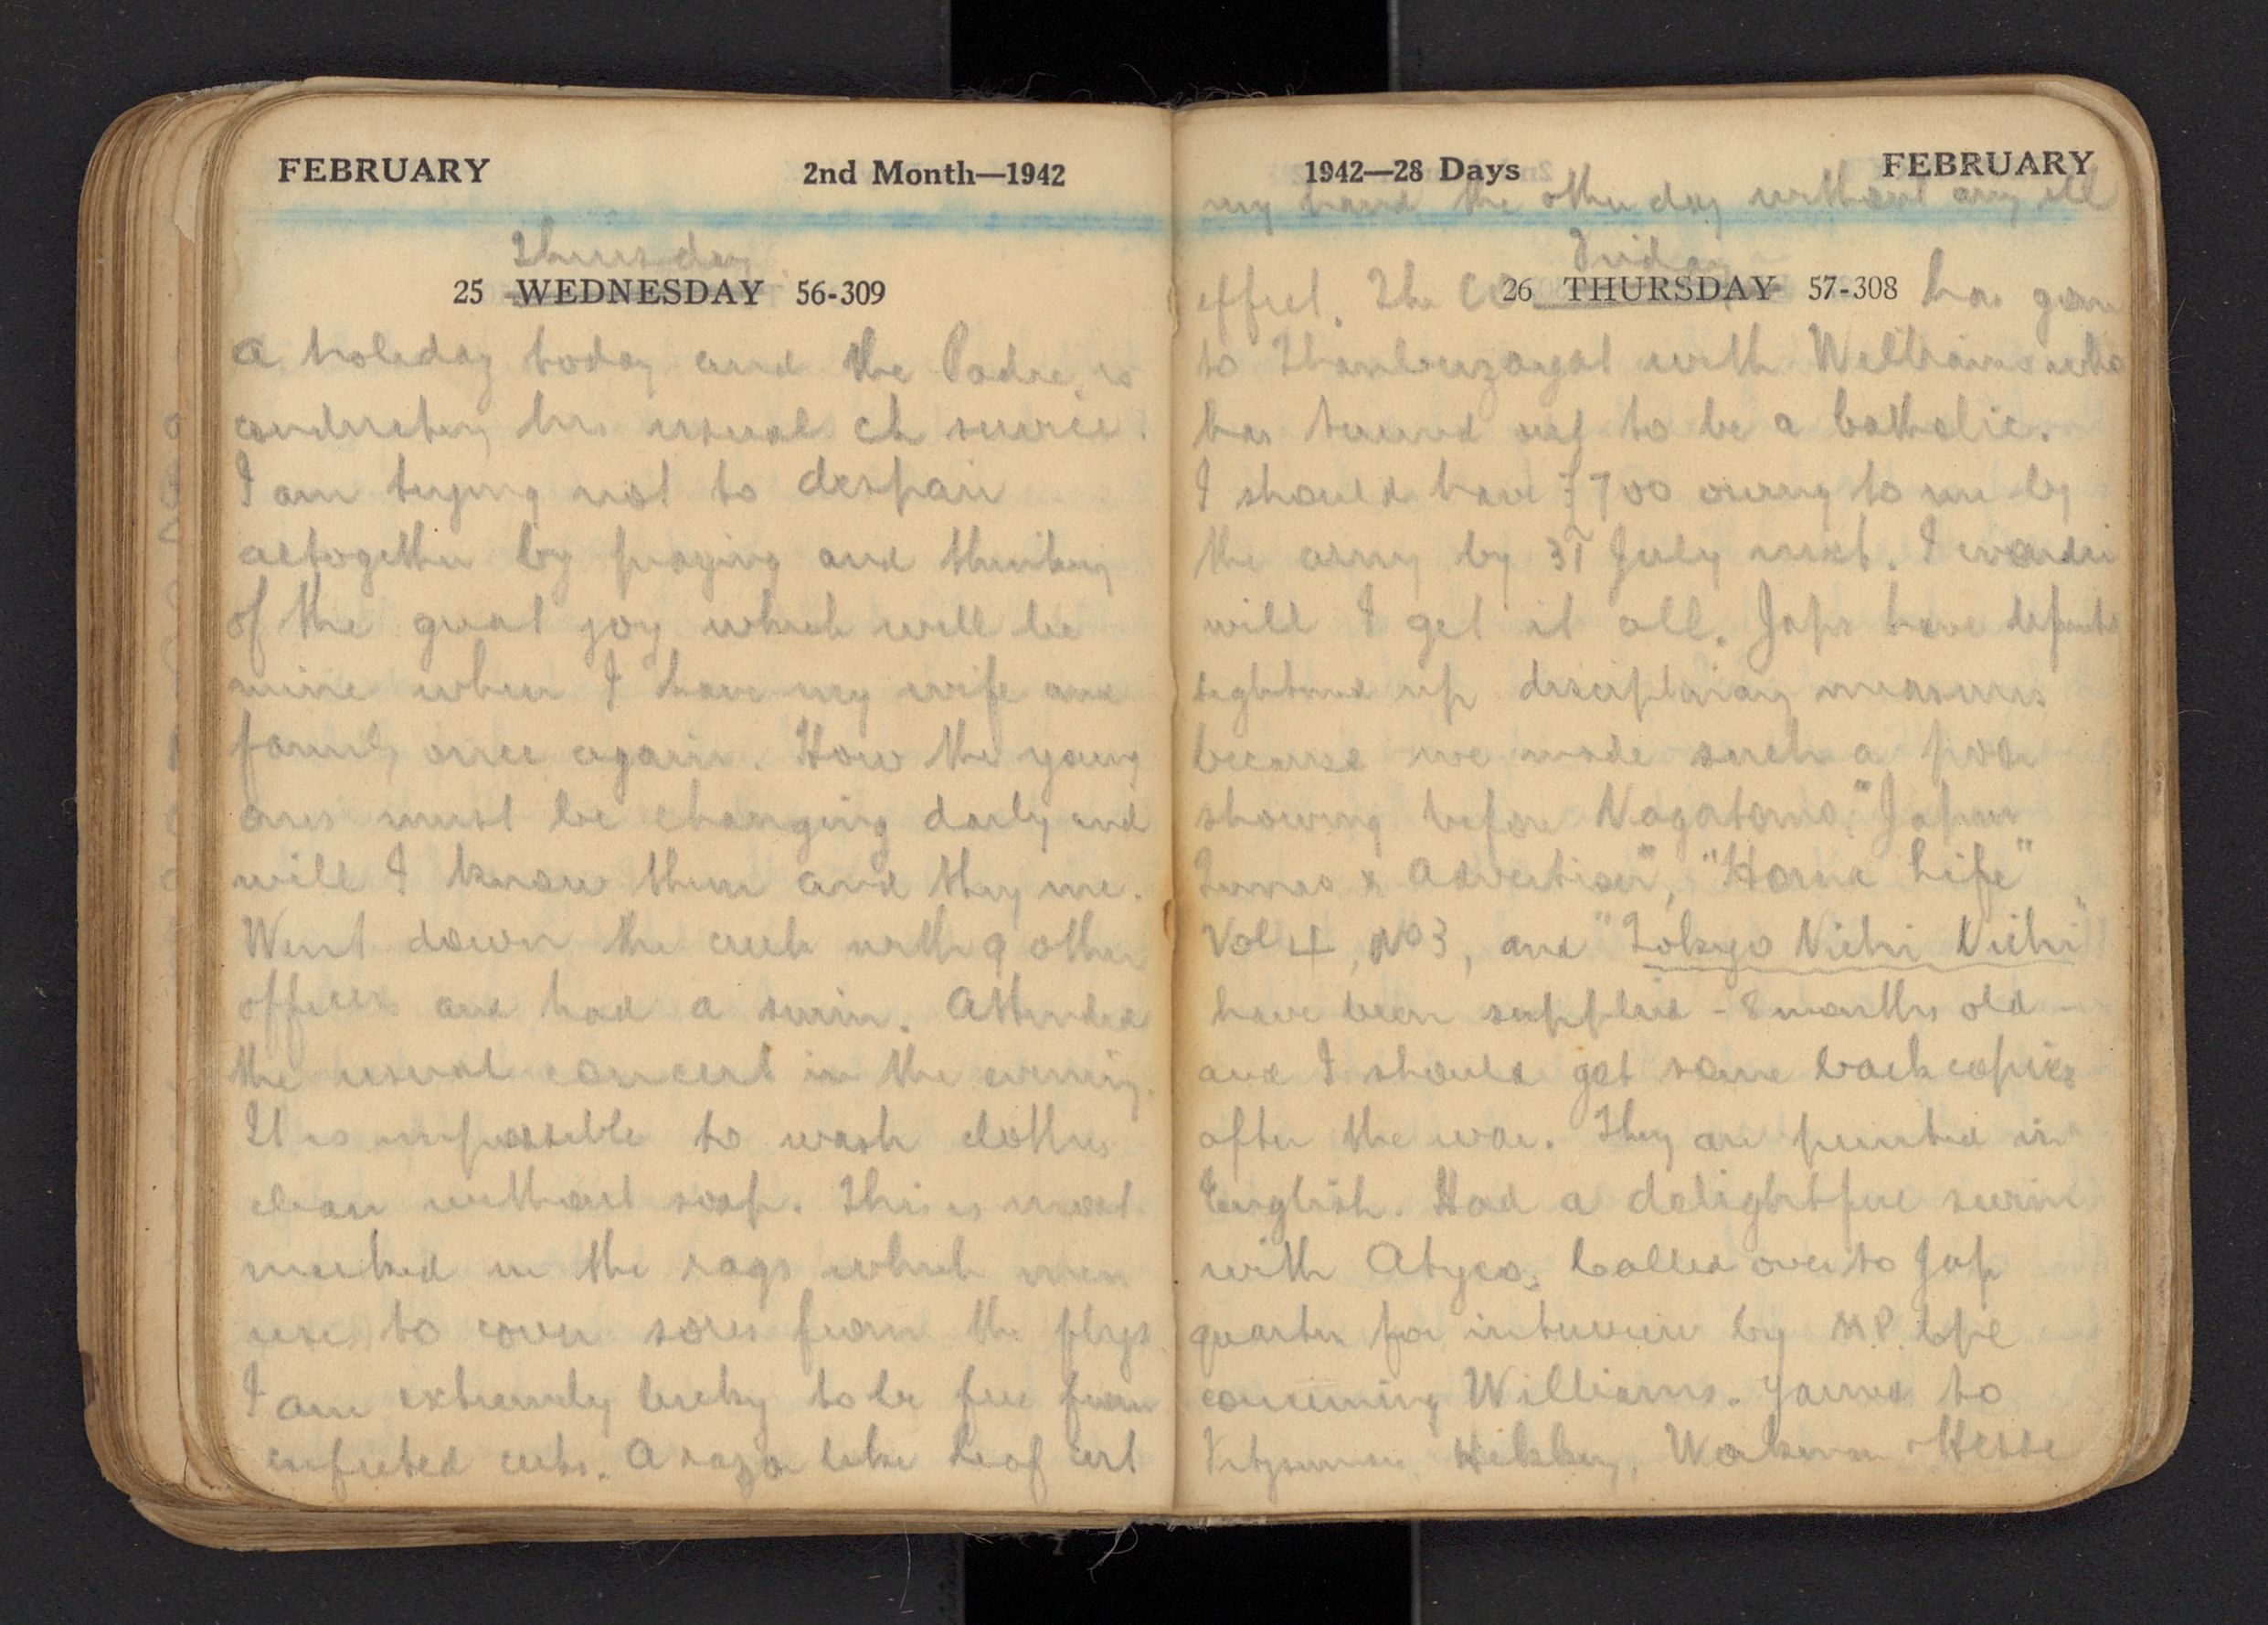 FEBRUARY 2nd Month—1942
Thursday
25 WEDNESDAY 56-309
A holiday today and the Padre is
conducting his usual ch service.
I am trying not to despair
altogether by praying and thinking
of the great joy which will be
mine when I have my wife and
family once again. How the young
ones must be changing daily and
will I know them and they me.
Went down the creek with 9 other
officers and had a swim. Attended
the usual concert in the evening.
It is impossible to wash clothes
clean without soap. This is most
marked in the rags which men
use to cover sores from the flys.
I am extremely lucky to be free from
infected cuts. A razor like leaf cut
1942—28 Days FEBRUARY
my hand the other day without any ill
Friday
26 THURSDAY 57-308
effect. The CO has gone
to Thanbuzayat with Williams who
has turned out to be a Catholic.
I should have £700 owing to me by
the army by 31 July next. I wonder
will I get it all. Japs have
tightened up disciplinary measures
because we made such a poor
showing before Nagatomo. "Japan
Times & Advertiser", "Home Life"
Vol 4, No 3, and "Tokyo Nichi Nichi"
have been supplied - 8 months old -
and I should get some back copies
after the war. They are printed in
English. Had a delightful swim
with Atyeo. Called over to Jap
quarter for interview by M.P. Cpl
concerning Williams. Yarned to
Workman Hesse